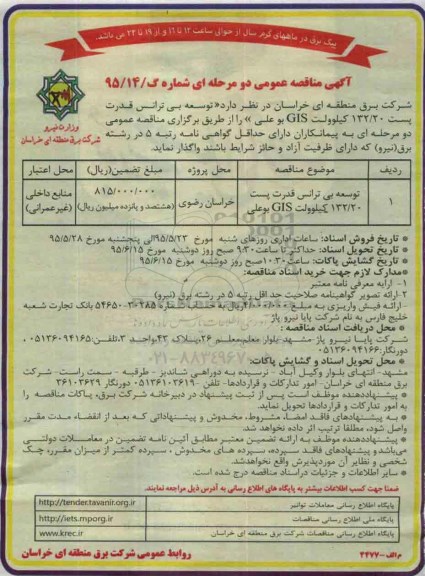 پیک برق در ماههای گرم سال از حوالی ساعت ۱۲ تا ۱۶ و از ۱۹ تا ۲۳ می باشد.
آگهی مناقصه عمومی دو مرحله ای شماره گ/۹۵/۱۴
وزارت نیرو
شرکت برق منطقه ای خراسان
شرکت برق منطقه ای خراسان در نظر دارد«توسعه بی ترانس قدرت
پست ۱۳۲/۲۰ کیلوولت GIS بوعلی » را از طریق برگزاری مناقصه عمومی
دو مرحله ای به پیمانکاران دارای حداقل گواهی نامه رتبه ۵ در رشته
برق(نیرو) که دارای ظرفیت آزاد و حائز شرایط باشند واگذار نماید.
ردیف موضوع مناقصه محل پروژه مبلغ تضمین(ریال) محل اعتبار
۱ توسعه بی ترانس قدرت پست ۱۳۲/۲۰ کیلوولت GIS بوعلی خراسان رضوی ۸۱۵/۰۰۰/۰۰۰ (هشتصد و پانزده میلیون ریال) منابع داخلی (غیرعمرانی)
* تاریخ فروش اسناد: ساعات اداری روزهای شنبه مورخ ۹۵/۵/۲۳ الی پنجشنبه مورخ ۹۵/۵/۲۸
* تاریخ تحویل اسناد: حداکثر تا ساعت ۹:۳۰ صبح روز دوشنبه مورخ ۹۵/۶/۱۵
* تاریخ گشایش پاکات: ساعت ۱۰:۳۰ صبح روز دوشنبه مورخ ۹۵/۶/۱۵
*مدارک لازم جهت خرید اسناد مناقصه:
۱- ارایه معرفی نامه معتبر
۲-ارائه تصویر گواهینامه صلاحیت حداقل رتبه ۵ در رشته برق (نیرو)
خلیج فارس به نام شرکت پایا نیرو پاژ
* محل دریافت اسناد مناقصه :
* محل تحویل اسناد و گشایش پاکات:
مشهد- انتهای بلوار وکیل آباد - نرسیده به دوراهی شاندیز - طرقبه - سمت راست- شرکت
برق منطقه ای خراسان- امور تدارکات و قراردادها- تلفن ۰۵۱۳۶۱۰۳۶۱۹ دورنگار ۳۶۱۰۳۶۲۹
* پیشنهاددهنده موظف است پس از ثبت پیشنهاد در دبیرخانه شرکت برق، پاکات مناقصه را
به امور تدارکات و قراردادها تحویل نماید.
* به پیشنهادهای فاقد امضا، مشروط، مخدوش و پیشنهاداتی که بعد از انقضاء مدت مقرر
واصل شود، مطلقا ترتیب اثر داده نخواهد شد.
* پیشنهاددهنده موظف به ارائه تضمین معتبر مطابق آئین نامه تضمین در معاملات دولتی
می باشد و پیشنهادهای فاقد سپرده، سپرده های مخدوش ، سپرده کمتر از میزان مقرر، چک
شخصی و نظایر آن موردپذیرش واقع نخواهدشد.
* سایر اطلاعات و جزئیات دراسناد مناقصه درج شده است.
ضمنا جهت کسب اطلاعات بیشتر به پایگاه های اطلاع رسانی به آدرس ذیل مراجعه نمایند.
پایگاه اطلاع رسانی معاملات توانیر http://tender.tavanir.org.ir
پایگاه ملی اطلاع رسانی مناقصات http://iets.mporg.ir
پایگاه اطلاع رسانی مناقصات شرکت برق منطقه ای خراسان www.krec.ir
روابط عمومی شرکت برق منطقه ای خراسان
م/الف-۲۴۷۷